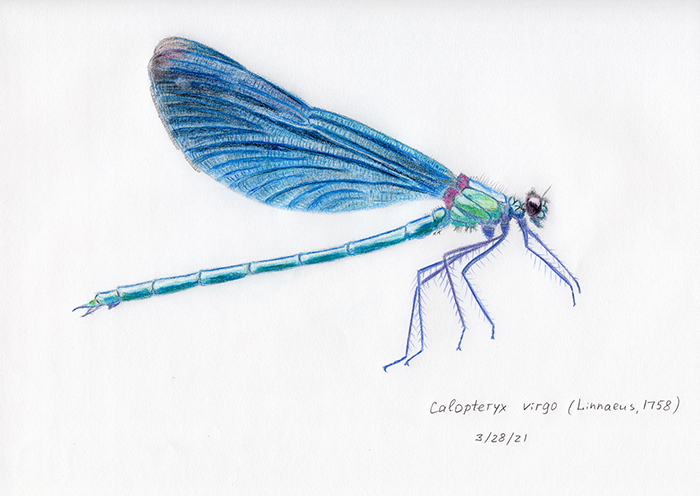 Calopteryx virgo (Linnaeus, 1758)
3/28/21